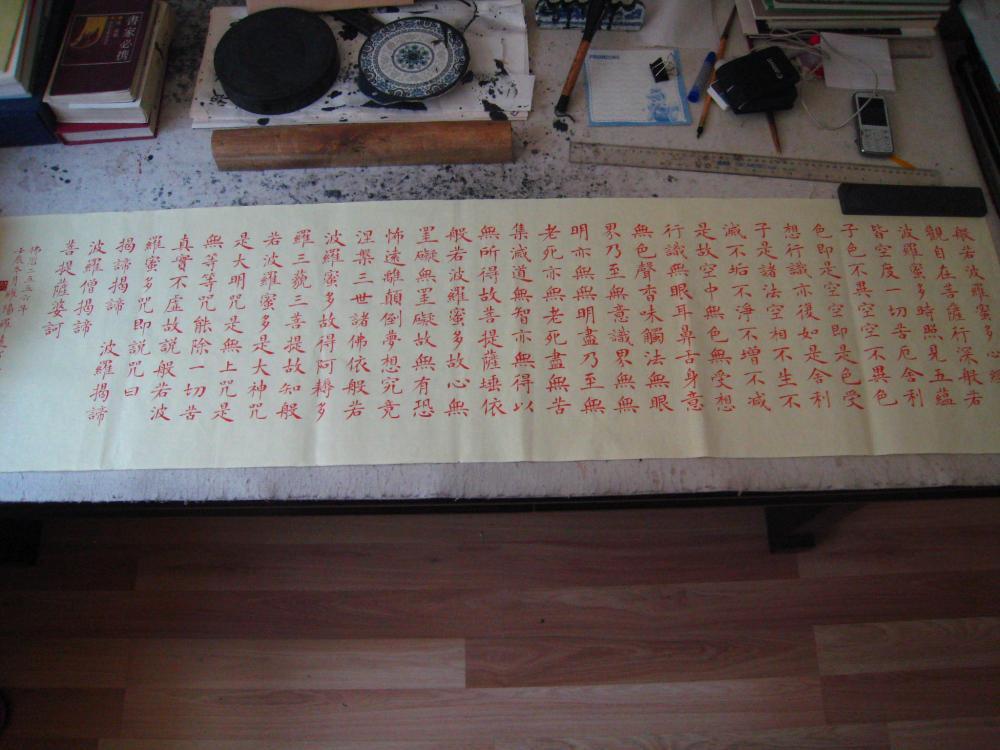 書家必携
般若波羅蜜多心經
觀自在菩薩行深般若
波羅蜜多時照見五蘊
皆空度一切苦厄舍利
子色不異空空不異色
色即是空空即是色受
想行識亦復如是舍利
子是諸法空相不生不
滅不垢不淨不增不減
是故空中無色無受想
行識無眼耳鼻舌身意
無色聲香味觸法無眼
界乃至無意識界無無
明亦無無明盡乃至無
老死亦無老死盡無苦
集滅道無智亦無得以
無所得故菩提薩埵依
般若波羅蜜多故心無
罣礙無罣礙故無有恐
怖遠離顛倒夢想究竟
涅槃三世諸佛依般若
波羅蜜多故得阿耨多
羅三藐三菩提故知般
若波羅蜜多是大神咒
是大明咒是無上咒是
無等等咒能除一切苦
真實不虛故說般若波
羅蜜多咒即說咒曰
揭諦揭諦 波羅揭諦
波羅僧揭諦
菩提薩婆訶
佛曆二五五六年
壬辰冬月